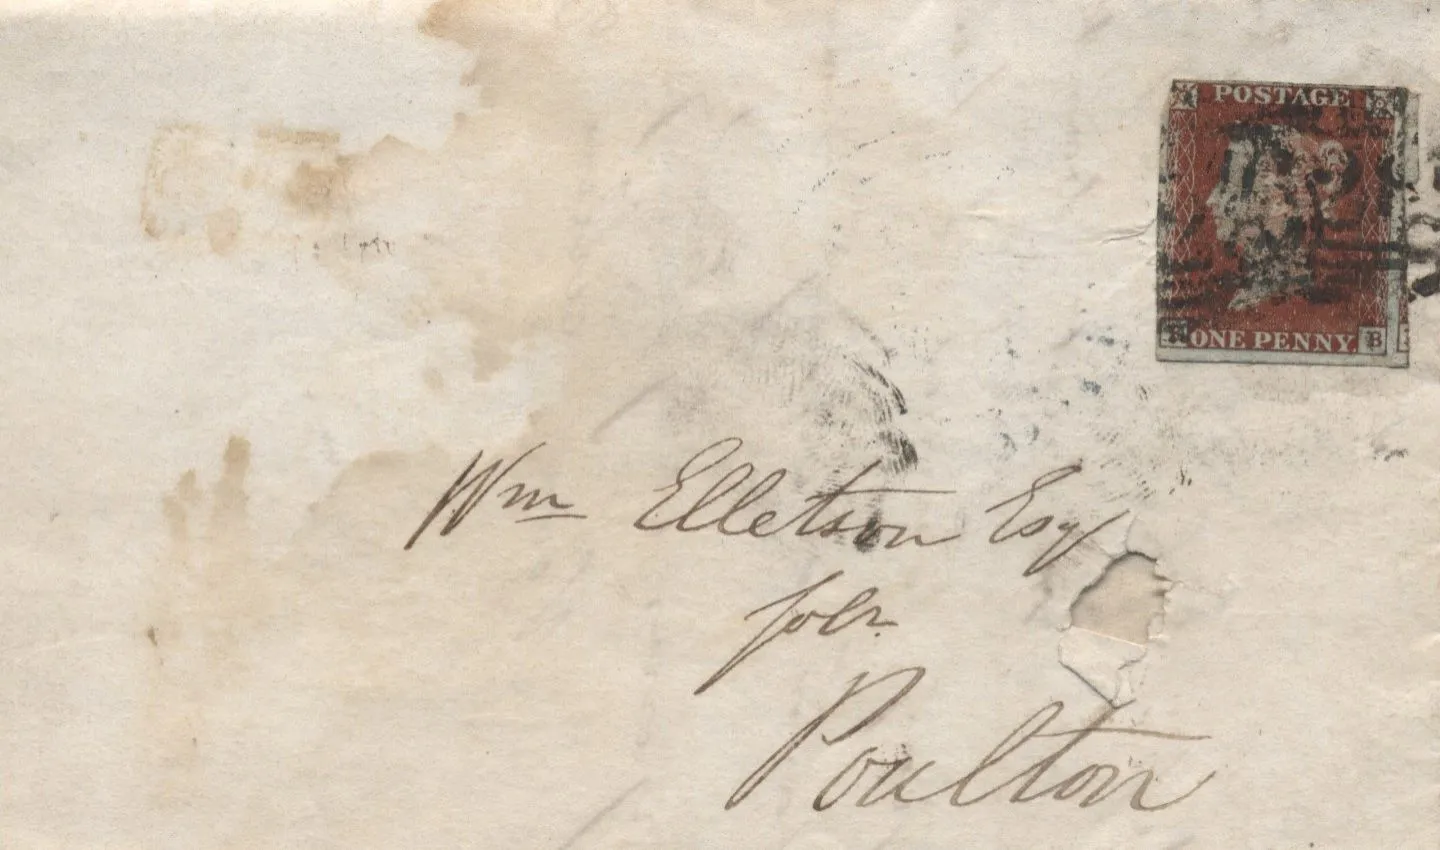 POSTAGE
ONE PENNY. B
Wm Elletson Esqr
solr.
Poulton